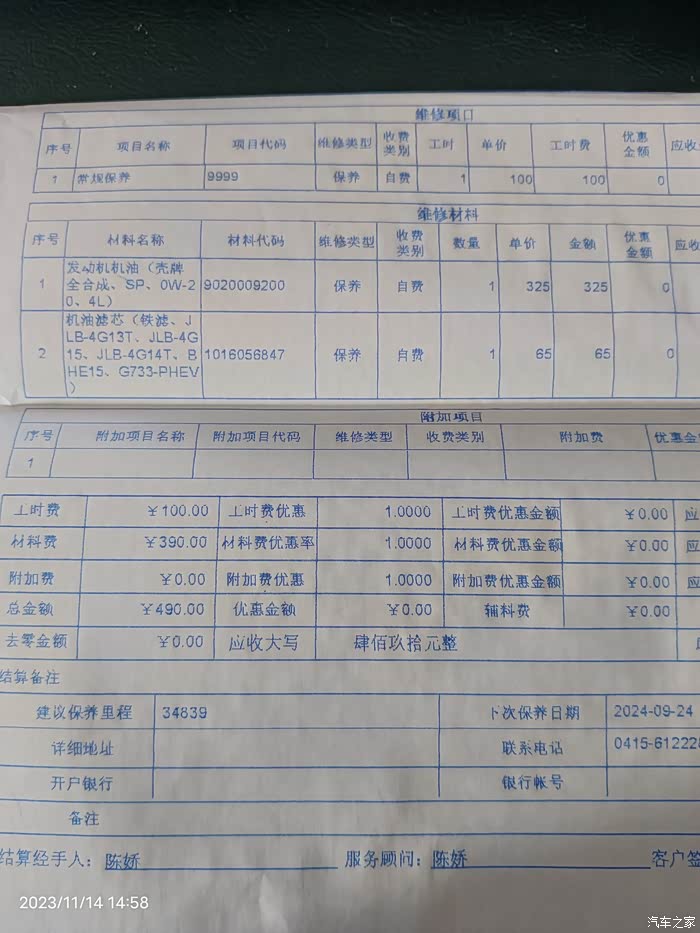 维修项目
序号 项目名称 项目代码 维修类型 收费类别 工时 单价 工时费 优惠金额 应收
1 常规保养 9999 保养 自费 1 100 100 0
维修材料
序号 材料名称 材料代码 维修类型 收费类别 数量 单价 金额 优惠金额 应收
1 发动机机油（壳牌全合成、SP、0W-20、4L） 9020009200 保养 自费 1 325 325 0
2 机油滤芯（铁滤、JLB-4G13T、JLB-4G15、JLB-4G14T、BHE15、G733-PHEV） 1016056847 保养 自费 1 65 65 0
附加项目
序号 附加项目名称 附加项目代码 维修类型 收费类别 附加费 优惠金
1
工时费 ￥100.00 工时费优惠 1.0000 工时费优惠金额 ￥0.00 应
材料费 ￥390.00 材料费优惠率 1.0000 材料费优惠金额 ￥0.00 应
附加费 ￥0.00 附加费优惠 1.0000 附加费优惠金额 ￥0.00 应
总金额 ￥490.00 优惠金额 ￥0.00 辅料费 ￥0.00
去零金额 ￥0.00 应收大写 肆佰玖拾元整
结算备注
建议保养里程 34839 下次保养日期 2024-09-24
详细地址 联系电话 0415-612228
开户银行 银行帐号
备注
结算经手人：陈娇 服务顾问：陈娇 客户签
2023/11/14 14:58
汽车之家